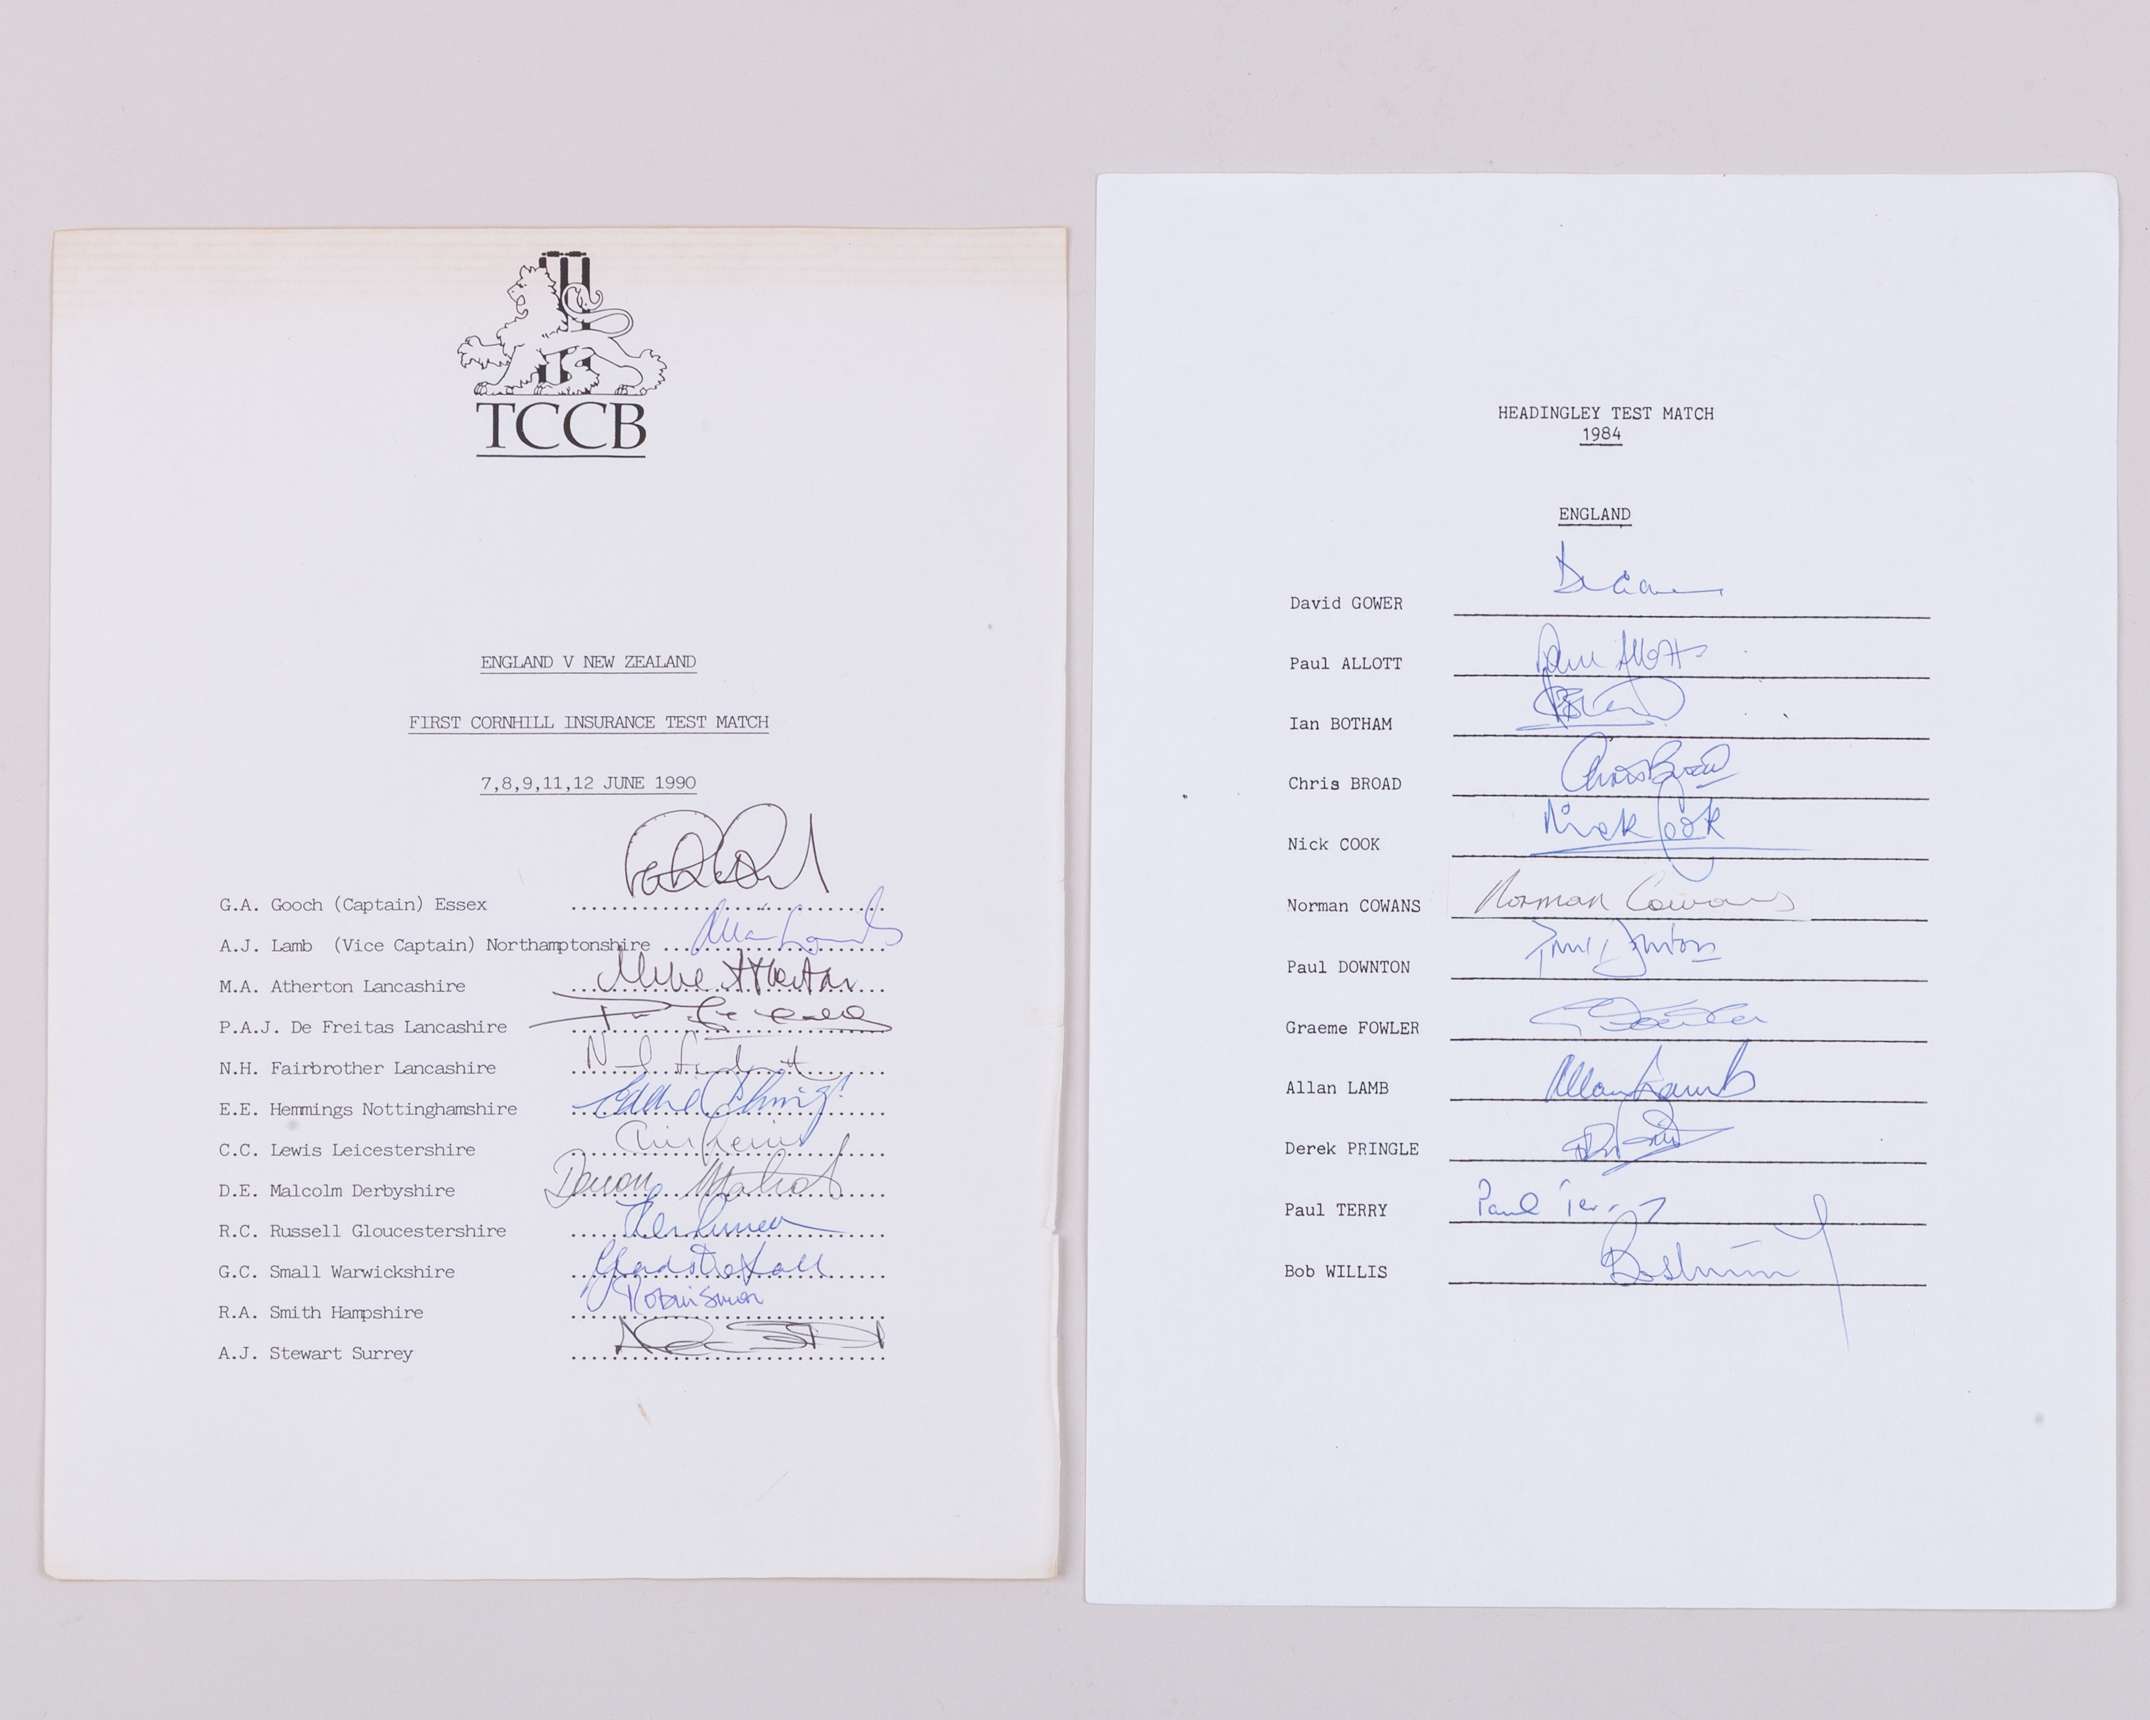 TCCB
ENGLAND V NEW ZEALAND
FIRST CORNHILL INSURANCE TEST MATCH
7,8,9,11,12 JUNE 1990
G.A. Gooch (Captain) Essex
A.J. Lamb (Vice Captain) Northamptonshire Allan Lamb
M.A. Atherton Lancashire Mike Atherton
P.A.J. De Freitas Lancashire
N.H. Fairbrother Lancashire
E.E. Hemmings Nottinghamshire
C.C. Lewis Leicestershire Chris Lewis
D.E. Malcolm Derbyshire Devon Malcolm
R.C. Russell Gloucestershire
G.C. Small Warwickshire Gladstone Small
R.A. Smith Hampshire Robin Smith
A.J. Stewart Surrey
HEADINGLEY TEST MATCH
1984
ENGLAND
David GOWER
Paul ALLOTT Paul Allott
Ian BOTHAM
Chris BROAD Chris Broad
Nick COOK Nick Cook
Norman COWANS Norman Cowans
Paul DOWNTON Paul Downton
Graeme FOWLER G Fowler
Allan LAMB Allan Lamb
Derek PRINGLE
Paul TERRY Paul Terry
Bob WILLIS